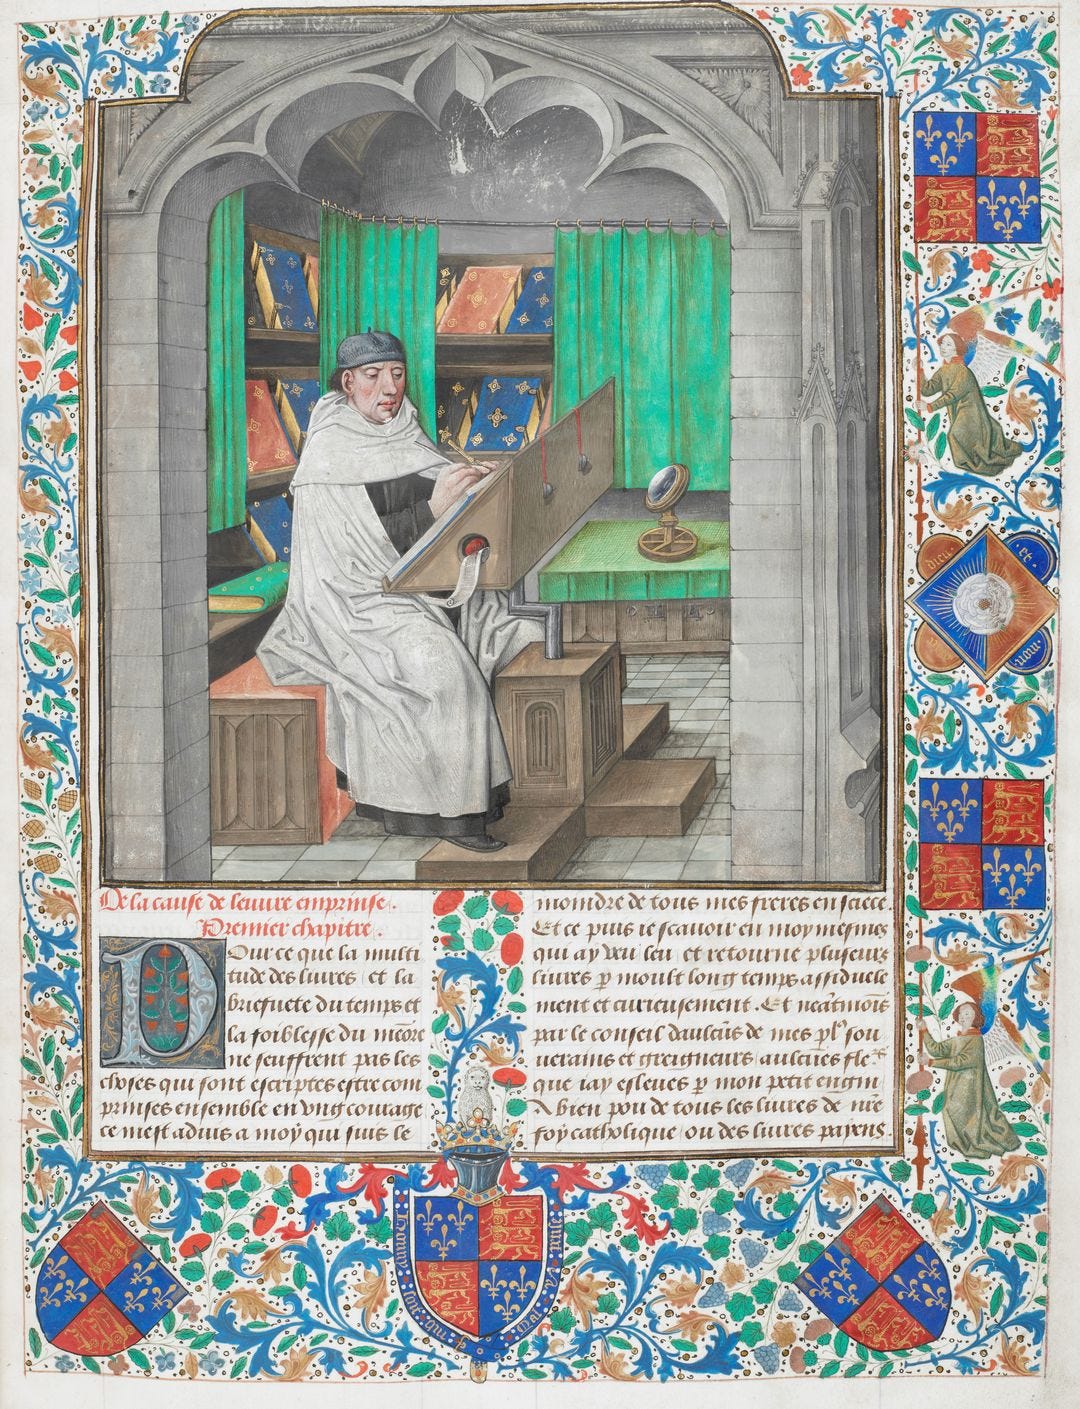 De la cause de leuure emprinse.
Premier chapitre.
Pour ce que la multi
tude des liures et la
briefuete du temps et
la foiblesse du meōre
ne seuffrent pas les
choses qui sont escriptes estre com
prinses ensemble en vng courage
ce mest aduis a moy qui suis le
moindre de tous mes freres en sciēce.
Et ce puis ie scauoir en moy mesmes
qui ay veu leu et retourne plusieurs
liures p moult long temps assiduele
ment et curieusement. Et neātmoīs
par le conseil daulcūs de mes plꝰ sou
uerains et greigneurs aulcūes
que iay esleues p mon petit engin
A bien pou de tous les liures de nr̄e
foy catholique ou des liures payens
dieu et mon
soit qui mal y pense